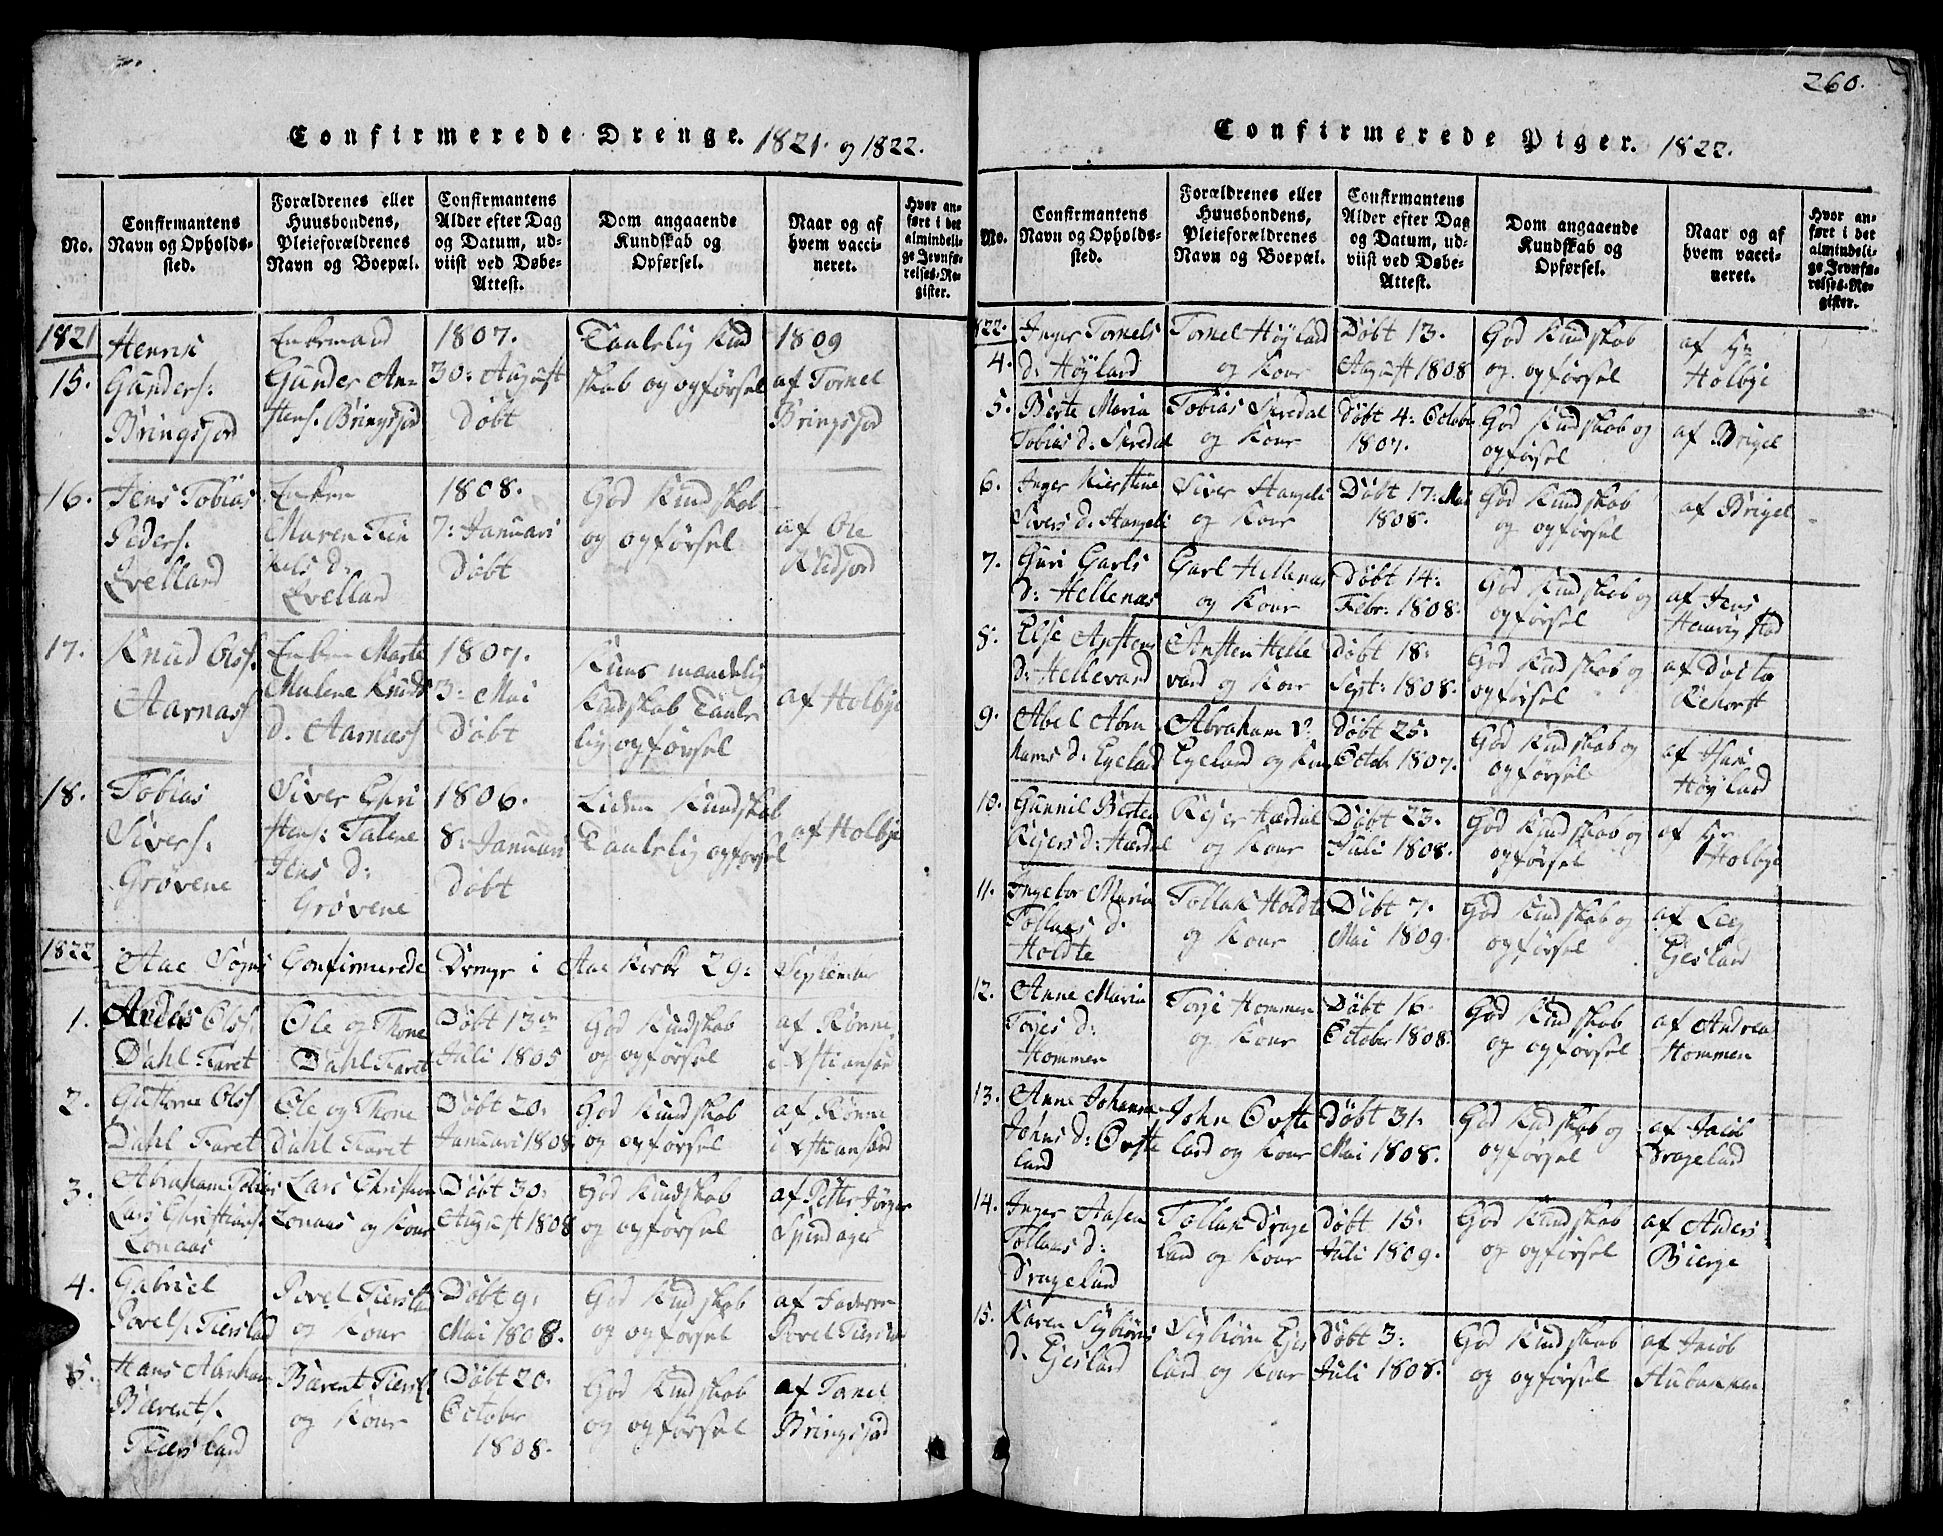 Confirmerede Drenge. 1821. og 1822.
No.
Confirmantens
Navn og Opholds-
sted.
Forældrenes eller
Huusbondens,
Pleieforældrenes
Navn og Boepæl.
Confirmantens
Alder efter Dag
og Datum, ud-
viist ved Døbe-
Attest.
Dom angaaende
Kundskab og
Opførsel.
Naar og af
hvem vacci-
neret.
Hvor an-
ført i det
almindeli-
ge Jevnfø-
relses-Re-
gister.
1821
15.
Henrik
Gunders:
Bringsjord
Enkemand
Gunder An-
stens. Bringsjord
1807.
30: August
Døbt
Taalelig Kund
skab og opførsel
1809
af Tornel
Bringsjord
16.
Jens Tobias
Peders.
Qvelland
Enken
Maren
d:
Qvelland
1808.
7: Januari
Døbt
God Kundskab
og opførsel
af Ole
Rødsjord
17.
Knud Ols.
Aarnæs
Enken Marte
Malene Knuds
d. Aarnæs
1807.
3: Mai
Døbt
Kuns maadelig
Kundskab Taale
lig opførsel
af Holbye
18.
Tobias
Sivers:
Grøvene
Siver
Talene
Jens d:
Grøvene
1806.
8: Januari
Døbt
Liden Kundskab
Taalelig opførsel
af Holbye
1822
Aae Sogns Confirmerede Drenge i Aae Kirke 29: September
1.
Anders Ols.
Dahl Faret
Ole og Thone
Dahl Faret
Døbt 13de
Juli 1805
God Kundskab
og opførsel
af Rønne
2.
Guttorm Ols
Dahl Faret
Ole og Thone
Dahl Faret
Døbt 20:
Januari 1808
God Kundskab
og opførsel
af Rønne
3.
Abraham Tobias
Lars Christians.
Lonaas
Lars Christian
Lonaas og Kone
Døbt 30:
August 1808
God Kundskab
og opførsel
af Petter Jørgen
Spindager
4.
Gabriel
Povels. Tiersland
Povel
og Kone
Døbt 9:
Mai 1808.
God Kundskab
og opførsel
af Faderen
Povel
5.
Hans Abraham
Bærents.
Tiersland
Bærent
og Kone
Døbt 20.
October
1808.
God Kundskab
og opførsel
af Tornel
Bringsjord
260.
Confirmerede Piger. 1822.
No.
Confirmantens
Navn og Opholds-
sted.
Forældrenes eller
Huusbondens,
Pleieforældrenes
Navn og Boepæl.
Confirmantens
Alder efter Dag
og Datum, ud-
viist ved Døbe-
Attest.
Dom angaaende
Kundskab og
Opførsel.
Naar og af
hvem vacci-
neret.
Hvor an-
ført i det
almindeli-
ge Jevnfø-
relses-Re-
gister.
1822.
4.
Inger Tornels
d: Høyland
Tornel Høyland
og Kone
Døbt 13.
August 1808
God Kundskab
og opførsel
af Hr
Holbye
5.
Berte Maria
Tobias d: Skredal
Tobias Skredal
og Kone
Døbt 4: October
1807.
God Kundskab og
opførsel
af Brigel
6.
Inger Kierstine
Sivers d.
Siver
og Kone
Døbt 17: Mai
1808.
God Kundskab
og opførsel
af Brigel
7.
Guri Carls
d: Hellenæs
Carl Hellenæs
og Kone
Døbt 14:
Febr: 1808.
God Kundskab og
opførsel
af Jens
8.
Else Anstens
d: Hellevard
Ansten Helle
vard og Kone
Døbt 18:
Sept: 1808.
God Kundskab og
opførsel
af
9.
Abel Abra
hams d: Egeland
Abraham
Egeland og Kone
Døbt 25:
Octob 1807.
God Kundskab og
opførsel
af
Høyland
10.
Gunnil Berte
Reiers d: Hærdal
Reier Hærdal
og Kone
Døbt 23.
Juli 1808.
God Kundskab og
opførsel
af Hr
Holbye
11.
Ingebor Maria
Tollaks d.
Holdte
Tollak Holdte
og Kone
Døbt 7.
Mai 1809.
God Kundskab og
opførsel
af
12.
Anne Maria
Torjes d:
Hommen
Torje Hommen
og Kone
Døbt 16.
October 1808.
God Kundskab
og opførsel
af Andreas
Hommen
13.
Anne Johanne
Johns d: Ovste
land
John Ovste
land og Kone
Døbt 31.
Mai 1808.
God Kundskab og
opførsel
af Jacob
Drageland
14.
Inger Aasen
Tollaks d:
Drageland
Tollak Drage
land og Kone
Døbt 15:
Juli 1809.
God Kundskab
og opførsel
af Anders
Bierge
15.
Karen Sigbiørns
d. Egesland
Sigbiørn Eges
land og Kone
Døbt 3:
Juli 1808.
God Kundskab
og opførsel
af Jacob